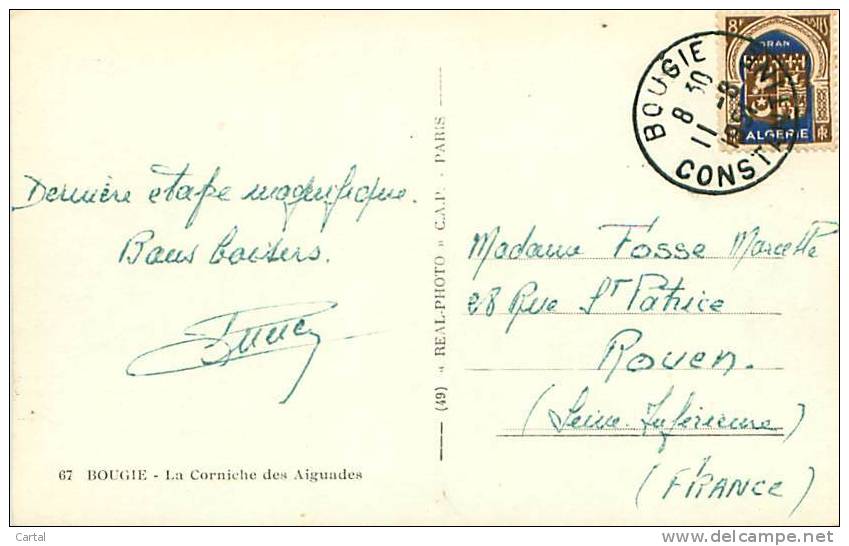 Dernière étape magnifique.
Bons baisers.
67 BOUGIE - La Corniche des Aiguades
(49) « REAL-PHOTO » C.A.P. - PARIS
8F
ORAN
ALGERIE
RF
BOUGIE
8 30
11 - 8
CONST
Madame Fosse Marcelle
28 Rue St Patrice
Rouen.
(Seine-Inférieure)
(FRANCE)
Cartal
delcampe.net